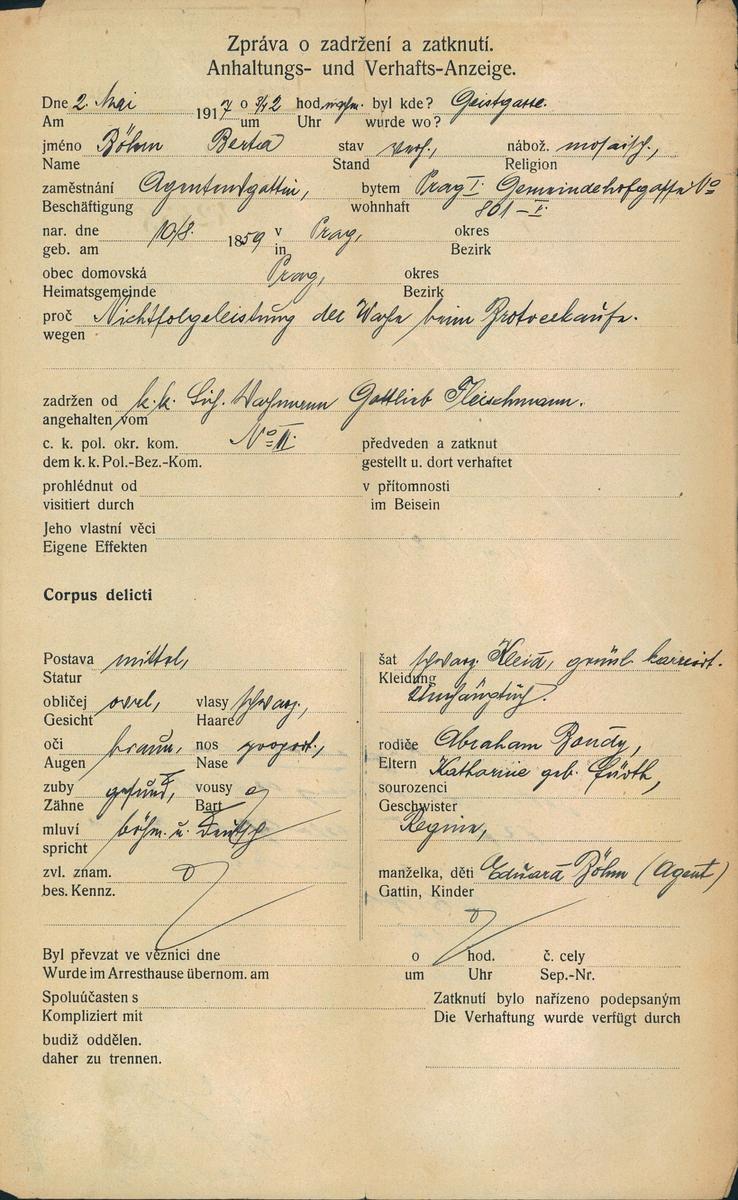 Zpráva o zadržení a zatknutí.
Anhaltungs- und Verhafts-Anzeige.
Dne 2. Mai 1917 o 3/42 hod nachm. byl kde? Geistgasse.
Am um Uhr wurde wo?
jméno Böhm Berta stav verh., nábož. mosaisch.,
Name Stand Religion
zaměstnání Agentensgattin, bytem Prag I. Gemeindehofgasse No
Beschäftigung wohnhaft 801-I.
nar. dne 10/8. 1859 v Prag, okres
geb. am in Bezirk
obec domovská Prag, okres
Heimatsgemeinde Bezirk
proč Nichtfolgeleistung der Wache beim Brotverkaufe.
wegen
zadržen od k.k. Sich. Wachmann Gottlieb Fleischmann.
angehalten vom
c. k. pol. okr. kom. No II. předveden a zatknut
dem k. k. Pol.-Bez.-Kom. gestellt u. dort verhaftet
prohlédnut od v přítomnosti
visitiert durch im Beisein
Jeho vlastní věci
Eigene Effekten
Corpus delicti
Postava mittel, šat schwarz. Kleid, grünl. karriert.
Statur Kleidung Umhängtuch.
obličej oval, vlasy schwarz.,
Gesicht Haare
oči braun, nos proport., rodiče Abraham Bondy,
Augen Nase Eltern Katharine geb. Fürth,
zuby gesund, vousy sourozenci
Zähne Bart Geschwister
mluví böhm. u. Deutsch Regine,
spricht
zvl. znam. manželka, děti Eduard Böhm (Agent)
bes. Kennz. Gattin, Kinder
Byl převzat ve věznici dne o hod. č. cely
Wurde im Arresthause übernom. am um Uhr Sep.-Nr.
Spoluúčasten s Zatknutí bylo nařízeno podepsaným
Kompliziert mit Die Verhaftung wurde verfügt durch
budiž oddělen.
daher zu trennen.